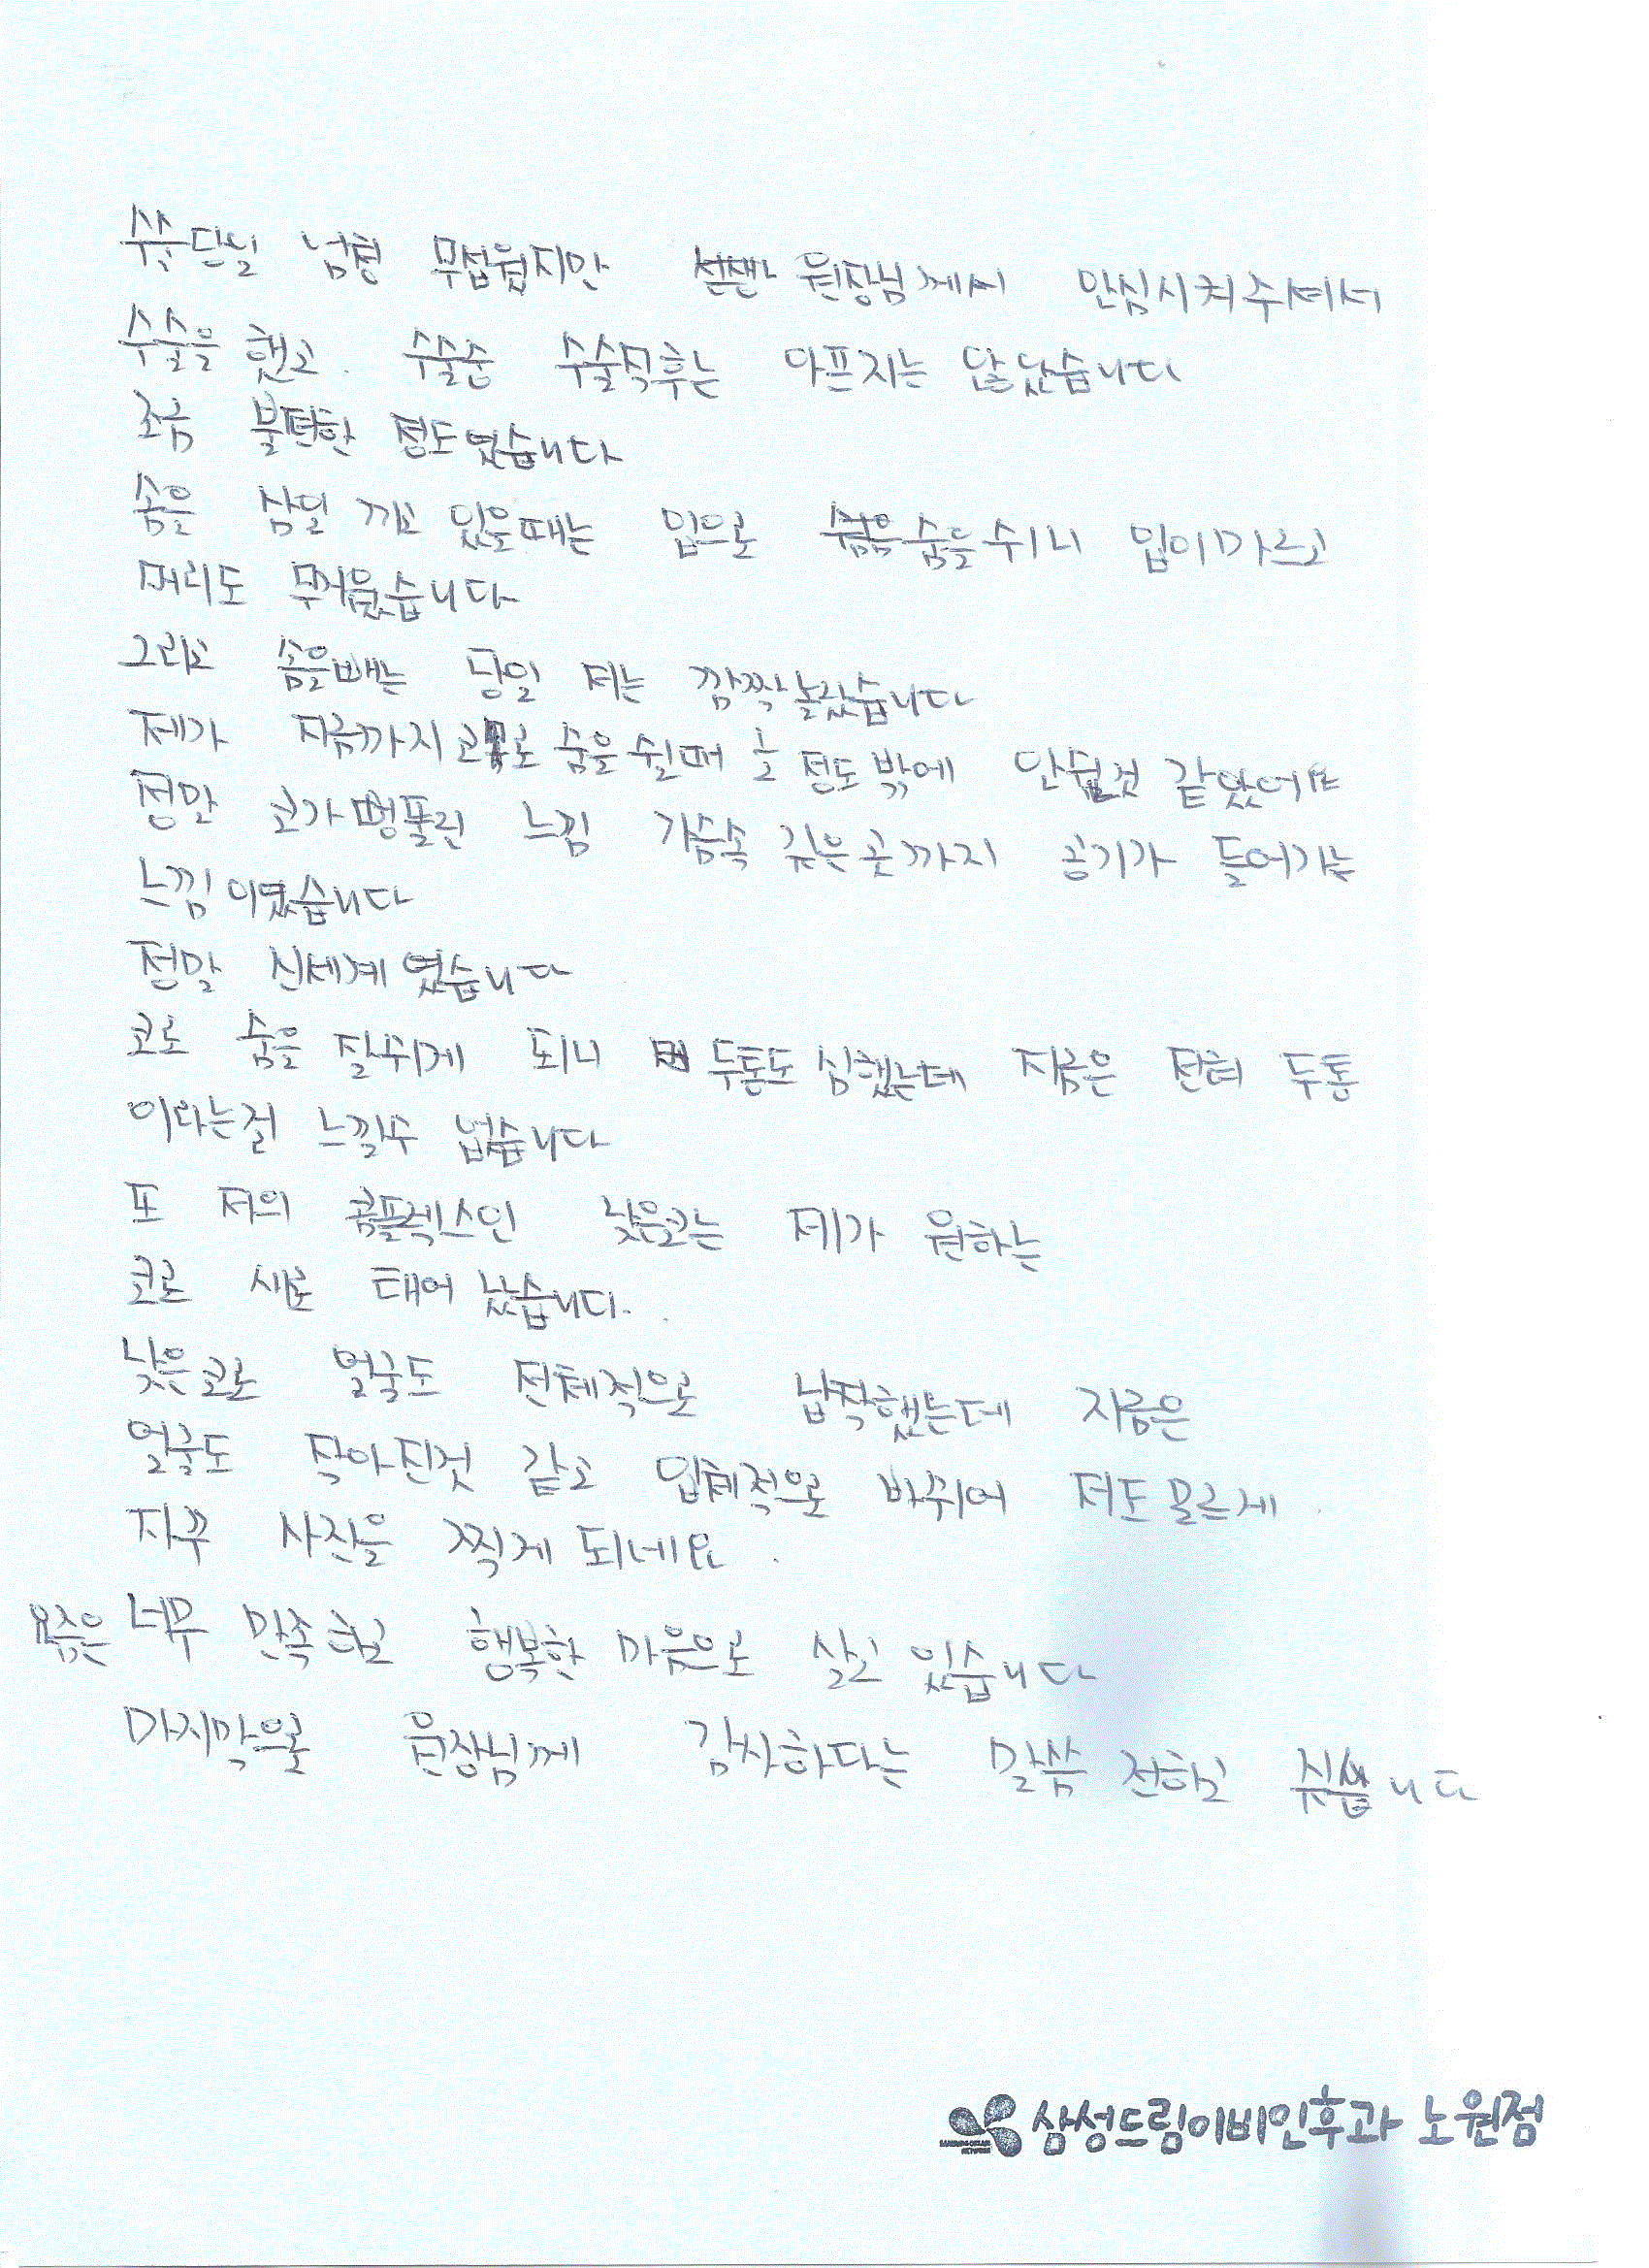 수술당일 넘청 무섭웠지만 원장님께서 안심시켜주셔서
수술을 했고. 수술중 수술직후는 아프지는 않았습니다
조금 불편한 정도였습니다
솜을 삼일 끼고 있을때는 입으로 숨을쉬니 입이마르고
머리도 무거웠습니다
그리고 솜을빼는 당일 저는 깜짝놀랐습니다
제가 지금까지코로 숨을쉴때 정도밖에 안쉰것 같았어요
정말 코가뻥뚫린 느낌 가슴속 깊은곳까지 공기가 들어가는
느낌이였습니다
정말 신세계였습니다
코로 숨을 잘쉬게 되니 두통도심했는데 지금은 전혀 두통
이라는걸 느낄수 없습니다
또 저의 콤플렉스인 낮은코는 제가 원하는
코로 새로 태어났습니다.
낮은코로 얼굴도 전체적으로 납작했는데 지금은
얼굴도 작아진것 같고 입체적으로 바뀌어 저도모르게.
자꾸 사진을 찍게 되네요.
요즘은 너무 만족하고 행복한 마음으로 살고 있습니다
마지막으로 원장님께 감사하다는 말씀 전하고 싶습니다
삼성드림이비인후과 노원점